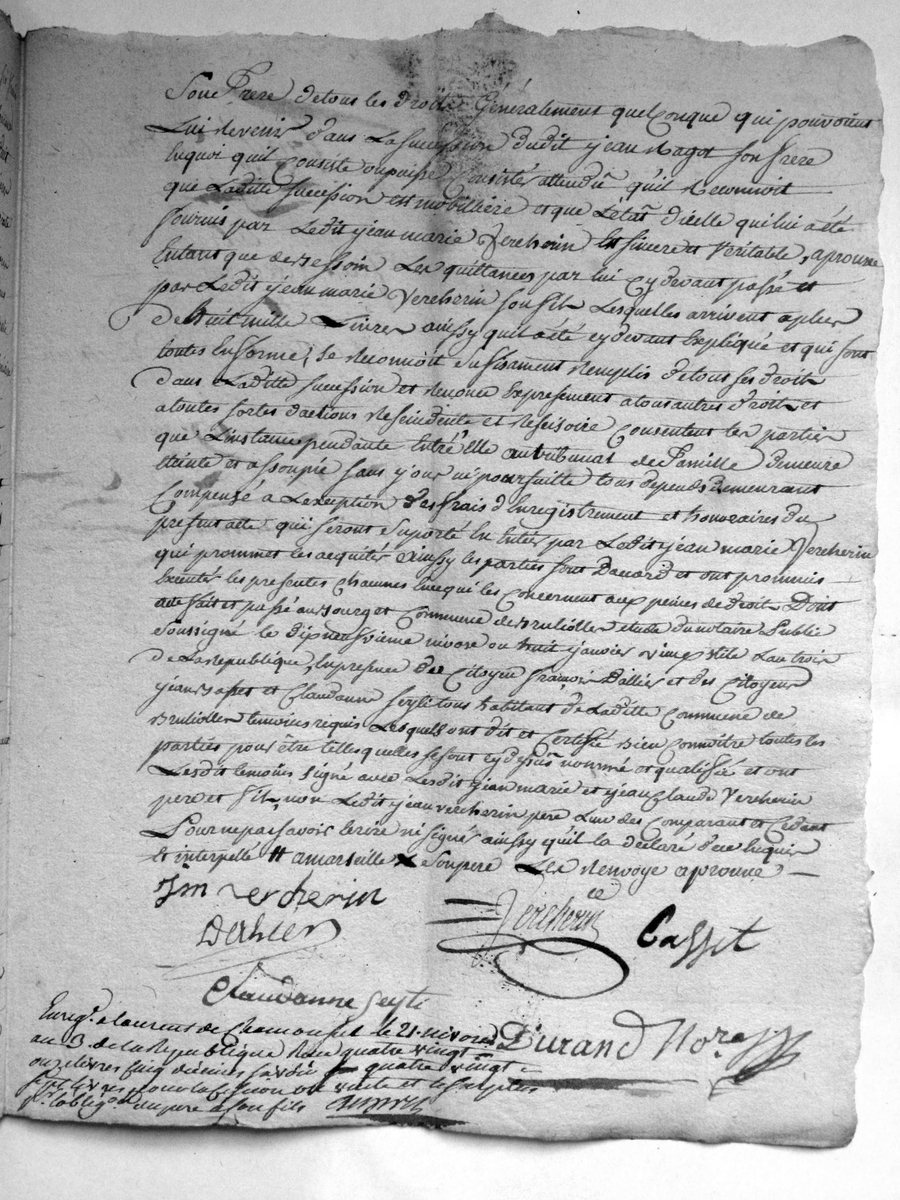 Son frere de tous les droits Généralement quelConque qui pouvoient
Lui Revenir dans La succession dudit jean Ragot son frere
En quoi quil Consiste ou puisse Consister attendû qu'il Reconnoit
que Laditte succession est mobilliere et que L'état d'icelle qui lui a été
fournis par Ledit jean marie Vercherin Est sincere et Veritable, aprouve
Entant que de Besoin Les quittances par lui Cy devant passé et
par Ledit jean marie Vercherin son fils Lesquelles arrivent a plus
de huit mille Livres ainssy quil a été cy devant Expliqué et qui sont
toutes En forme, se Reconnoit suffisament Remplis de tous ses droits
dans Laditte succession et Renonce Expressement a tous autres droits et
a toutes sortes d'actions Rescindente et Rescisoire Consentent les parties
que L'instance pendante Entre Elle au tribunal de famille demeure
Eteinte et assoupie sans jour ni poursuitte tous depends demeurant
Compensé a L'exception des frais d'Enregistrement et honoraires du
present acte qui seront suporté En Entier par Ledit jean marie Vercherin
qui prommet les acquiter ainssy les parties sont D'accord et ont prommis
Executer les presentes chacunes En ce qui les concernent aux peines de droit Dont
acte fait et passé au Bourg et Commune de Brulliolles etude du notaire Public
soussigné le dix neufvieme nivose ou huit janvier vieux stile L'an trois
de La Republique, En presence du Citoyen françois Dallier et des Citoyens
jean Basset et Claudanne Seytte tous habitant de Laditte Commune de
Brulliolles temoins requis Lesquels ont dit et Certifié Bien connoître toutes les
parties pour être telles quelles se sont cy dessus nommé et qualifié et ont
Lesdit temoins signé avec Lesdit jean marie et jean Claude Vercherin
pere et fils, non Ledit jean vercherin pere L'un des Comparant et Cedant
Pour ne pas savoir Ecrire ni signer ainssy qu'il la déclaré de ce Enquis
Et interpellé # a marseille X son pere Les Renvoye aprouvé
Jm vercherin
Vercherin
Dahlier
Casset
Claudanne Seyti
Durand Nore
Enregé a Laurent de Chamousset le 21 nivose
an 3 de la Republique Reçu quatre vingt
onze livres cinq décimes savoir quatre vingt
sept livres pour la Cession et le surplus
pr l'oblig. du pere a son fils